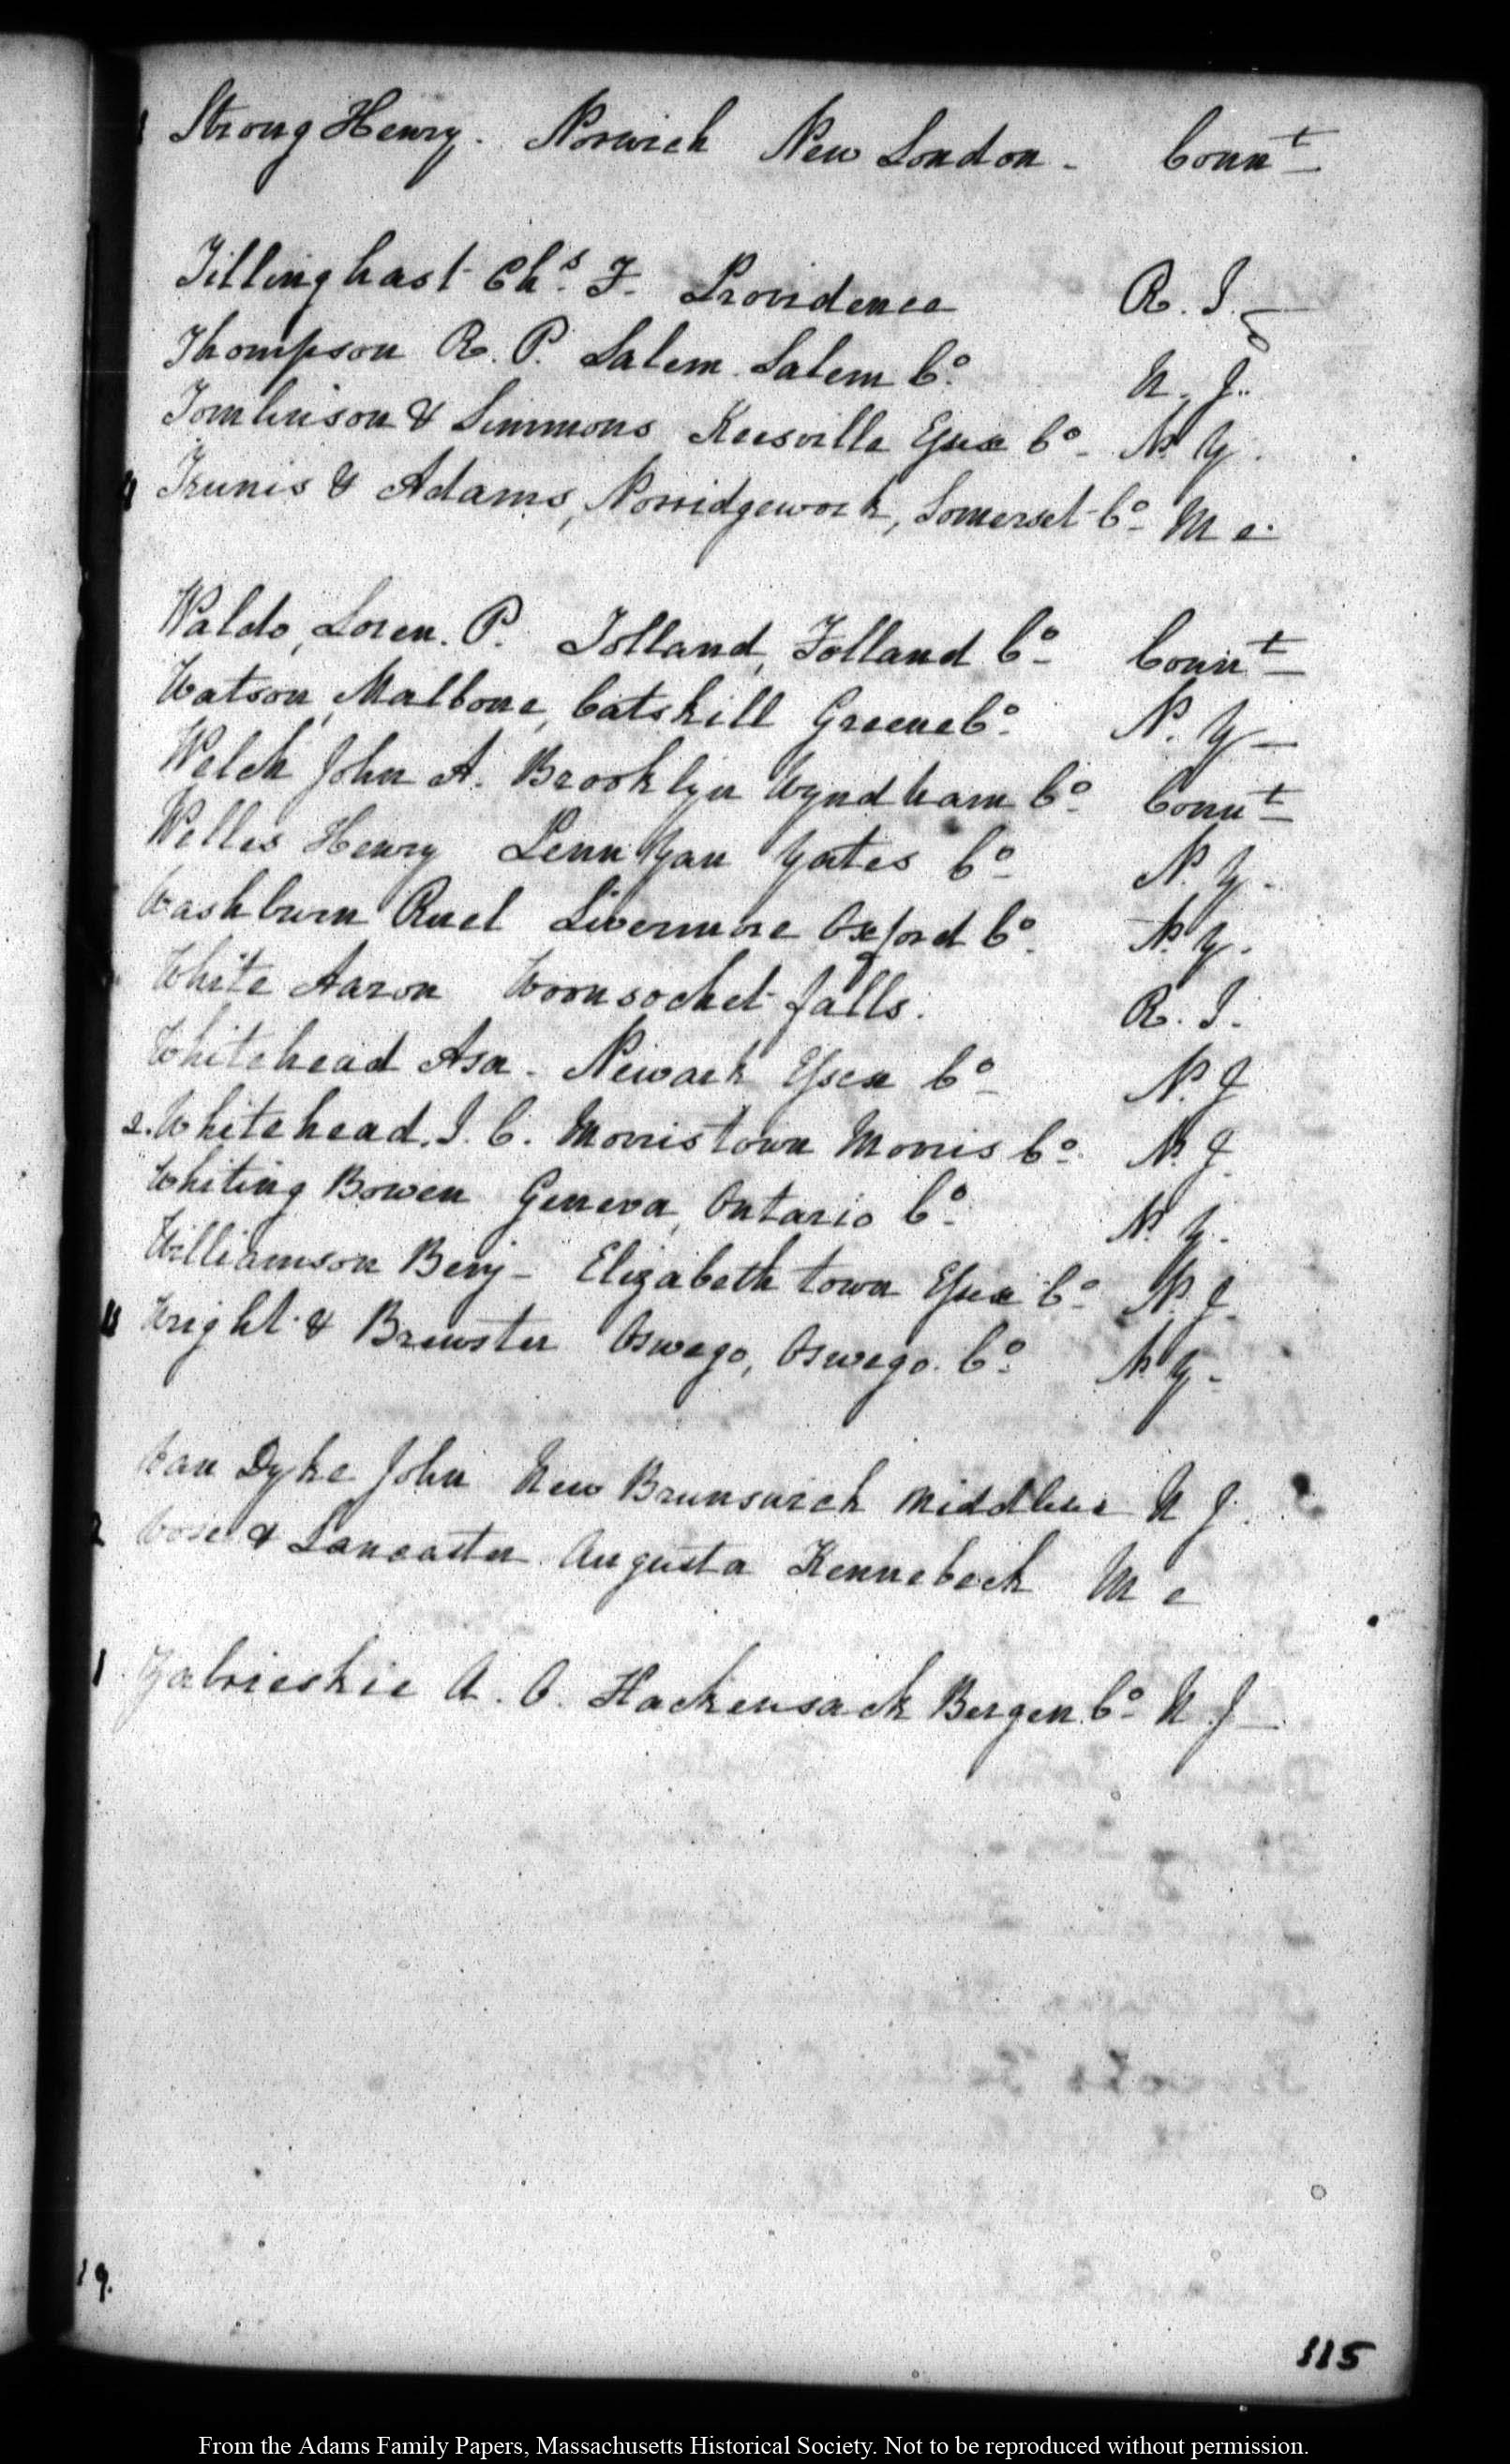 Strong Henry. Norwich New London - Connt
Tillinghast Chs. F. Providence R. I.
Thompson R. P. Salem Salem Co. N. J.
Tomlinson & Simmons Keesville Essex Co. N. Y.
11 Trunis & Adams, Norridgework, Somerset Co. Me.
Waldo, Loren. P. Tolland, Tolland Co. Connt
Watson, Malbone, Catskill Greene Co. N. Y
Welch John A. Brooklyn Wyndham Co. Connt
Welles Henry Penn Yan Yates Co. N. Y.
Washburn Ruel Livermore Oxford Co. N. Y.
White Aaron Woonsocket falls. R. I.
Whitehead Asa - Newark Essex Co. N. J
2. Whitehead. I. C. Morristown Morris Co. N. J.
Whiting Bowen Geneva, Ontario Co. N. Y.
Williamson Benj - Elizabeth town Essex Co. N. J.
11 Wright & Brewster Oswego, Oswego. Co. N. Y.
Van Dyke John New Brunswick Middlesex N J.
2 Vose & Lancaster Augusta Kennebeck Me
1 Zabrieskie A. O. Hackensack Bergen Co. N. J
19.
115
From the Adams Family Papers, Massachusetts Historical Society. Not to be reproduced without permission.